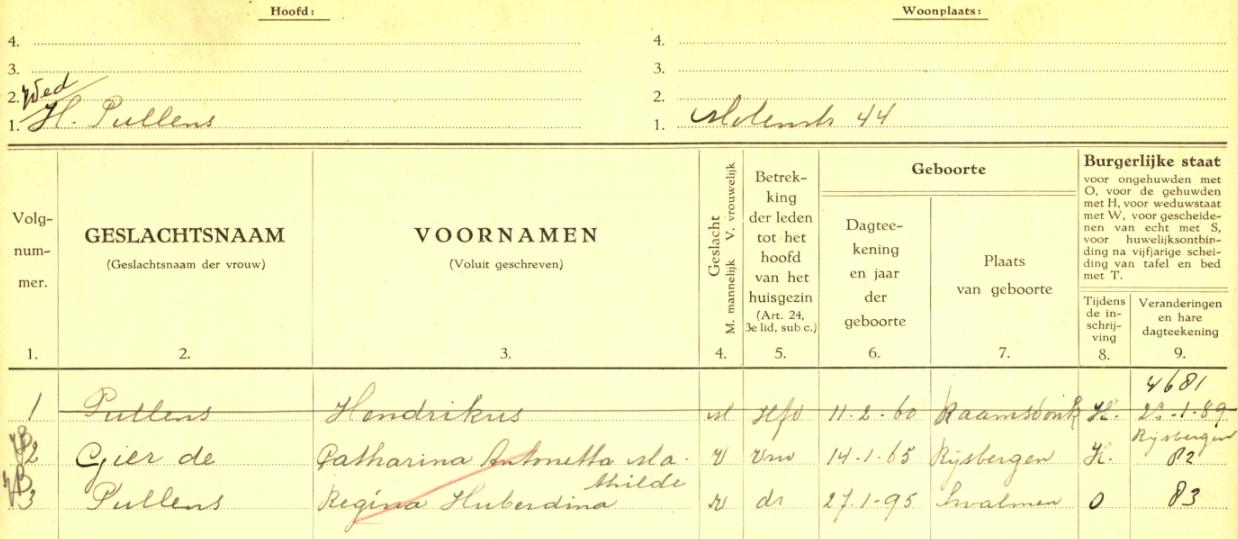 Hoofd:
Woonplaats:
4.
4.
3.
3.
Wed
2.
2.
1. H. Pullens
1. Molenstr 44
Volg-
num-
mer.
GESLACHTSNAAM
(Geslachtsnaam der vrouw)
VOORNAMEN
(Voluit geschreven)
Geslacht
M. mannelijk V. vrouwelijk
Betrek-
king
der leden
tot het
hoofd
van het
huisgezin
(Art. 24,
3e lid, sub c.)
Geboorte
Dagtee-
kening
en jaar
der
geboorte
Plaats
van geboorte
Burgerlijke staat
voor ongehuwden met
O, voor de gehuwden
met H, voor weduwstaat
met W, voor gescheide-
nen van echt met S,
voor huwelijksontbin-
ding na vijfjarige schei-
ding van tafel en bed
met T.
Tijdens
de in-
schrij-
ving
Veranderingen
en hare
dagteekening
1. 2. 3. 4. 5. 6. 7. 8. 9.
4681
1 Pullens Hendrikus M Hfd 11-2-60 Raamsdonk H. -1-89
Rijsbergen
2 Gier de Catharina Antonetta Ma- V Vrw 14-1-65 Rijsbergen H. 82
thilde
3 Pullens Regina Huberdina V dr 27-1-95 Swalmen O 83